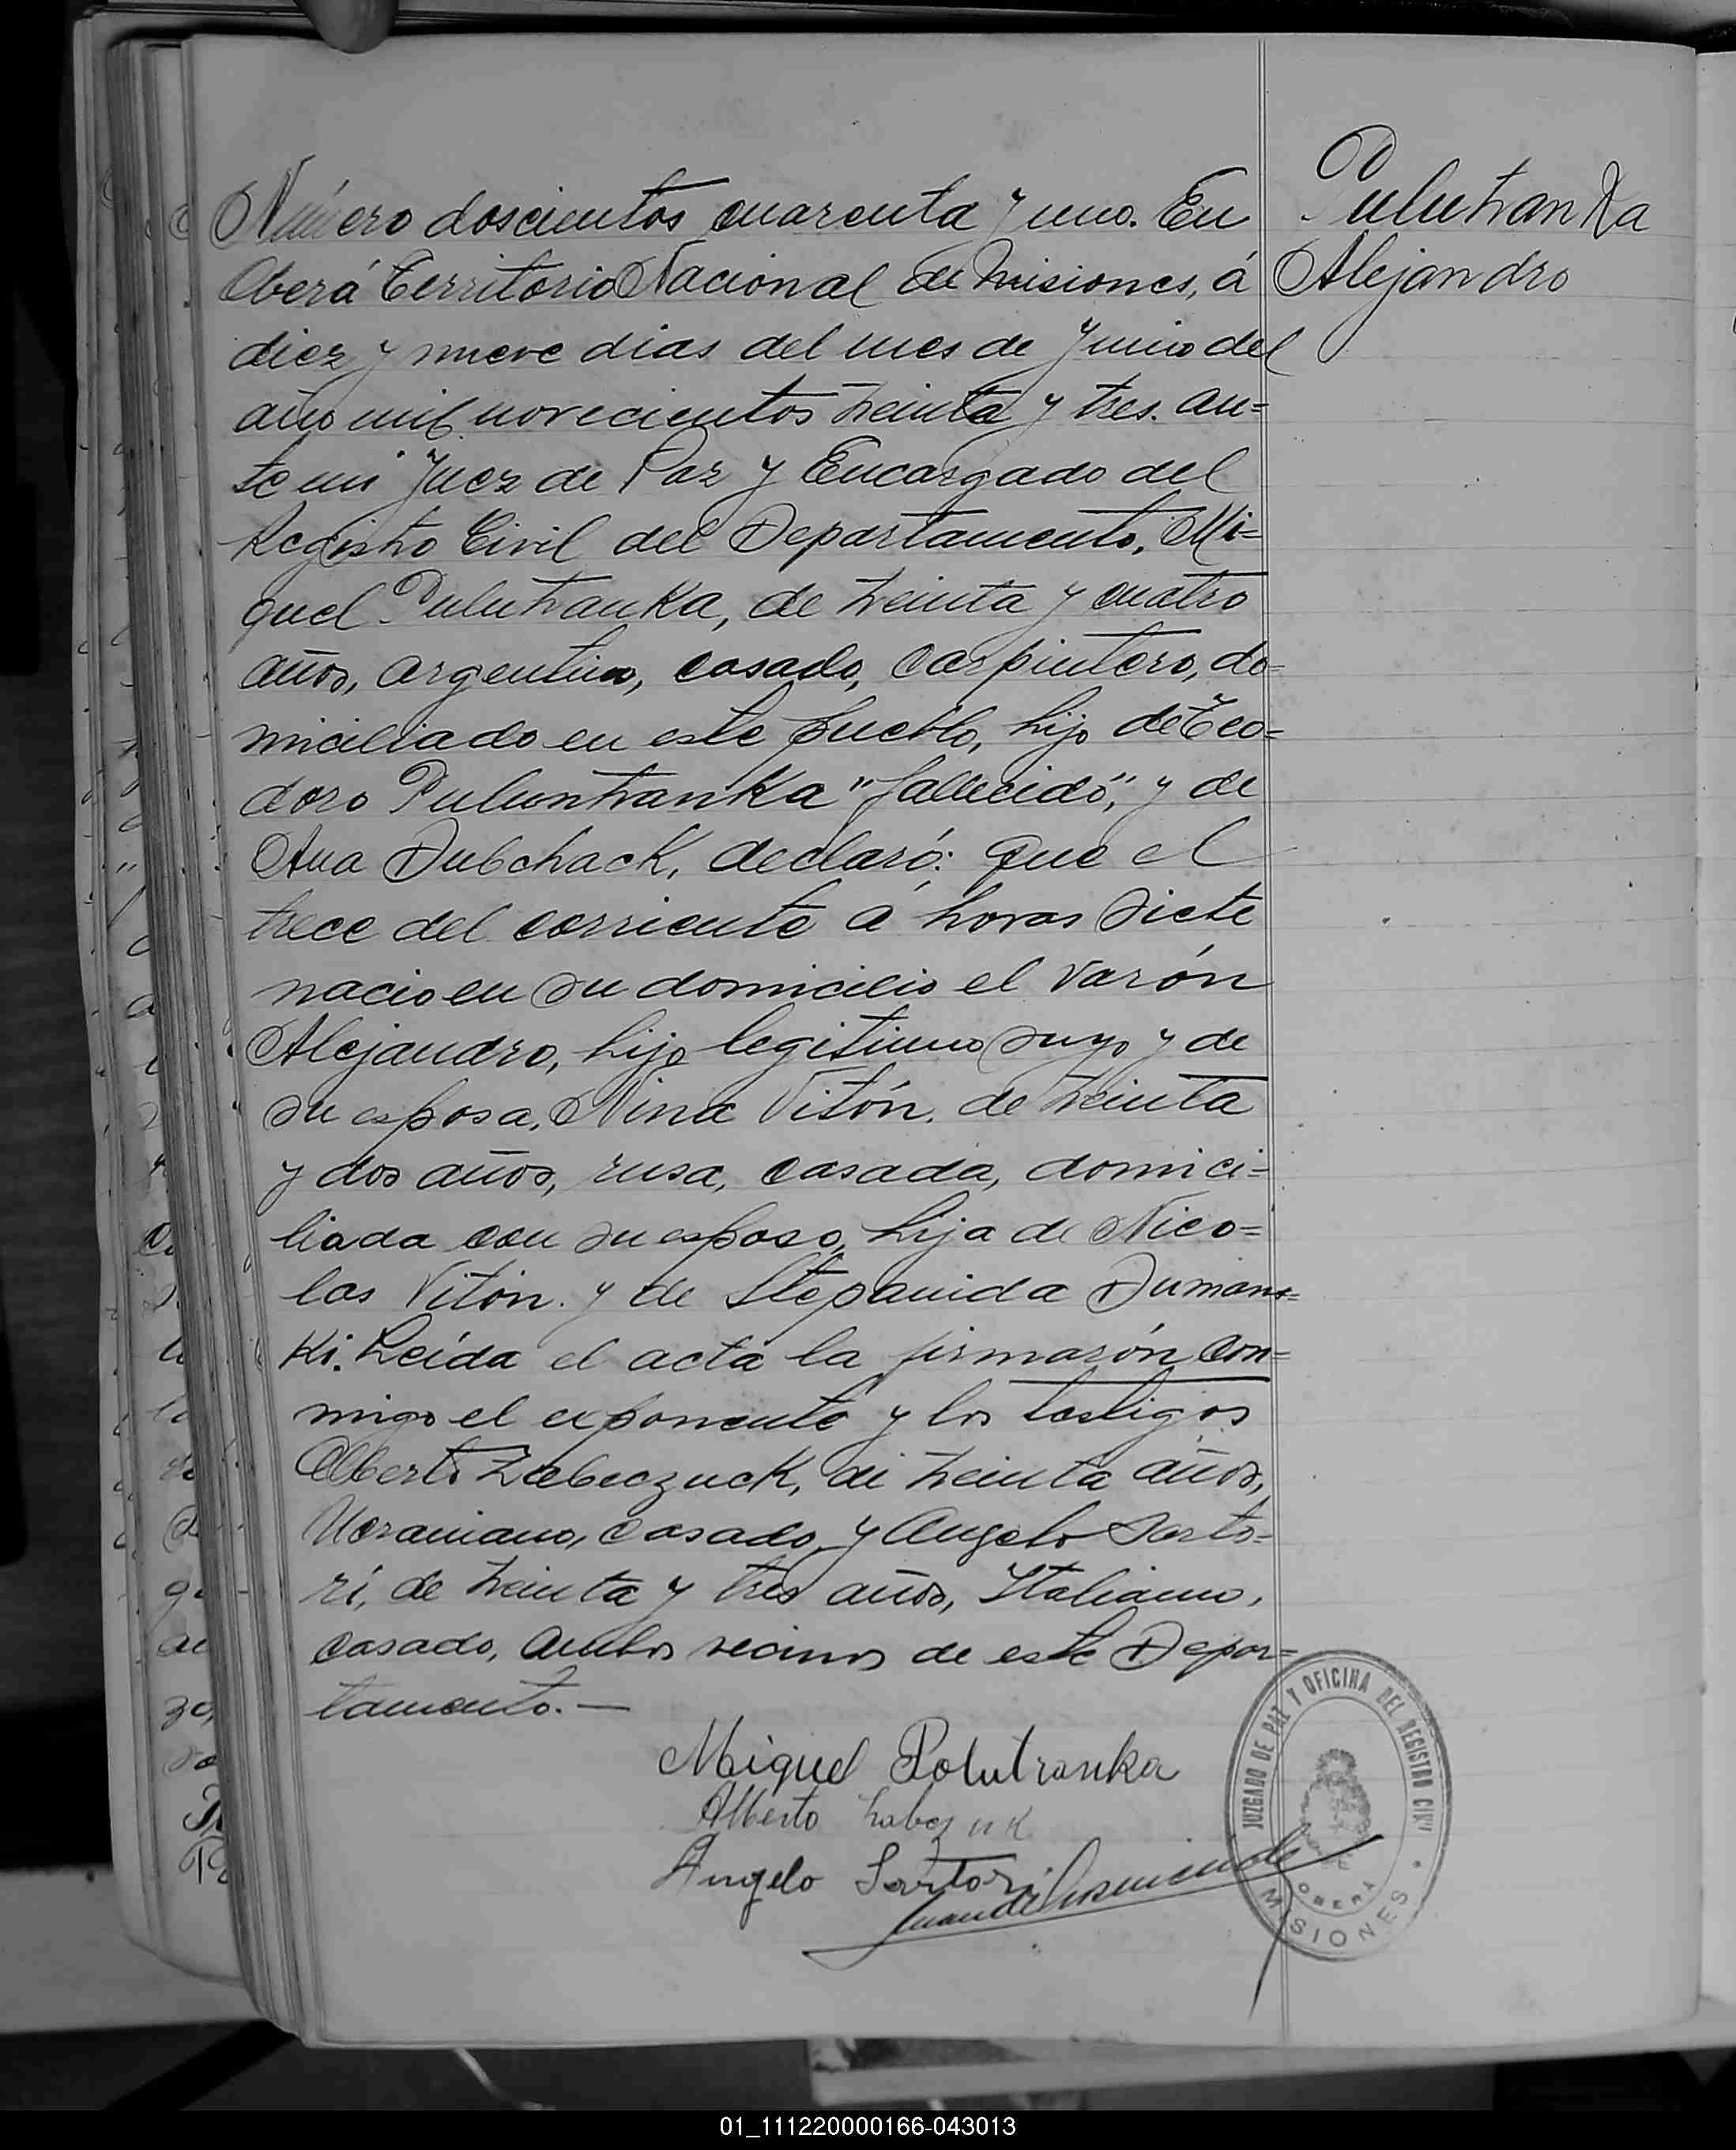 Pulutranka
Alejandro
Número doscientos cuarenta y uno. En
Oberá Territorio Nacional de Misiones, á
diez y nueve dias del mes de Junio del
año mil novecientos treinta y tres. an=
te mi Juez de Paz y Encargado del
Registro Civil del Departamento, Mi=
guel Pulutranka, de treinta y cuatro
años, argentino, casado, carpintero, do=
miciliado en este pueblo, hijo de Teo=
doro Puluntranka "fallecido", y de
Ana Dubchack, declaró: que el
trece del corriente a horas siete
nacio en su domicilio el varón
Alejandro, hijo legitimo suyo y de
su esposa, Nina Vitón. de treinta
y dos años, rusa, casada, domici=
liada con su esposo, hija de Nico=
las Vitón. y de Stepanida Dumans=
ki. Leída el acta la firmarón con=
migo el exponente y los testigos
Alberto Zabeczuck, de treinta años,
Ucraniano, casado, y Angelo Sarto=
ri, de treinta y tres años, Italiano,
casado, ambos vecinos de este Depar=
tamento.—
Miguel Polutranka
Alberto
Angelo Sartori
JUZGADO DE PAZ Y OFICINA DEL REGISTRO CIVIL
OBERÁ
MISIONES
01_111220000166-043013